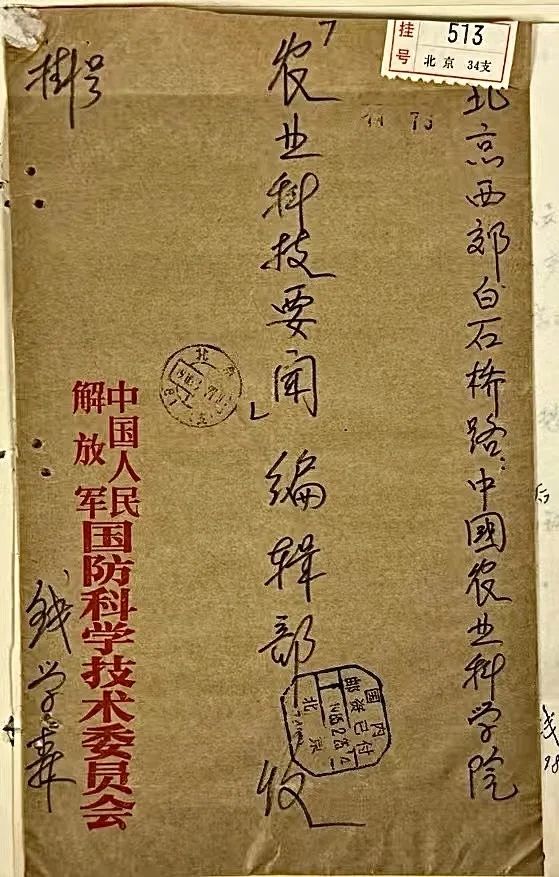 挂号 513
北京 34支
北京西郊白石桥路:中國农业科学院
「农业科技要闻」编辑部 收
掛号
中国人民
解放军
国防科学技术委员会
钱学森
北京
国内付
邮资已
北京